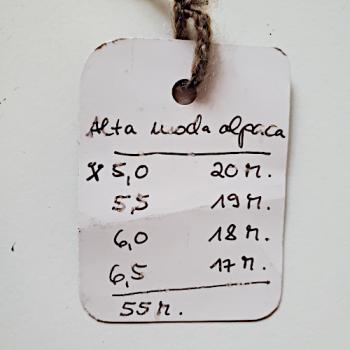 Alta moda alpaca
x 5,0 20 r.
5,5 19 r.
6,0 18 r.
6,5 17 r.
55 r.